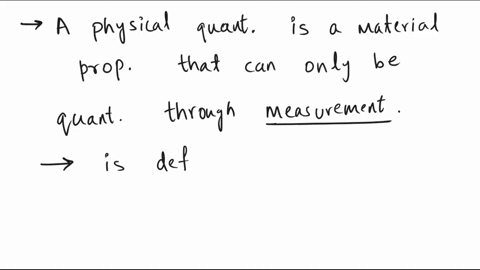 → A physical quant. is a material
prop. that can only be
quant. through measurement.
→ is def